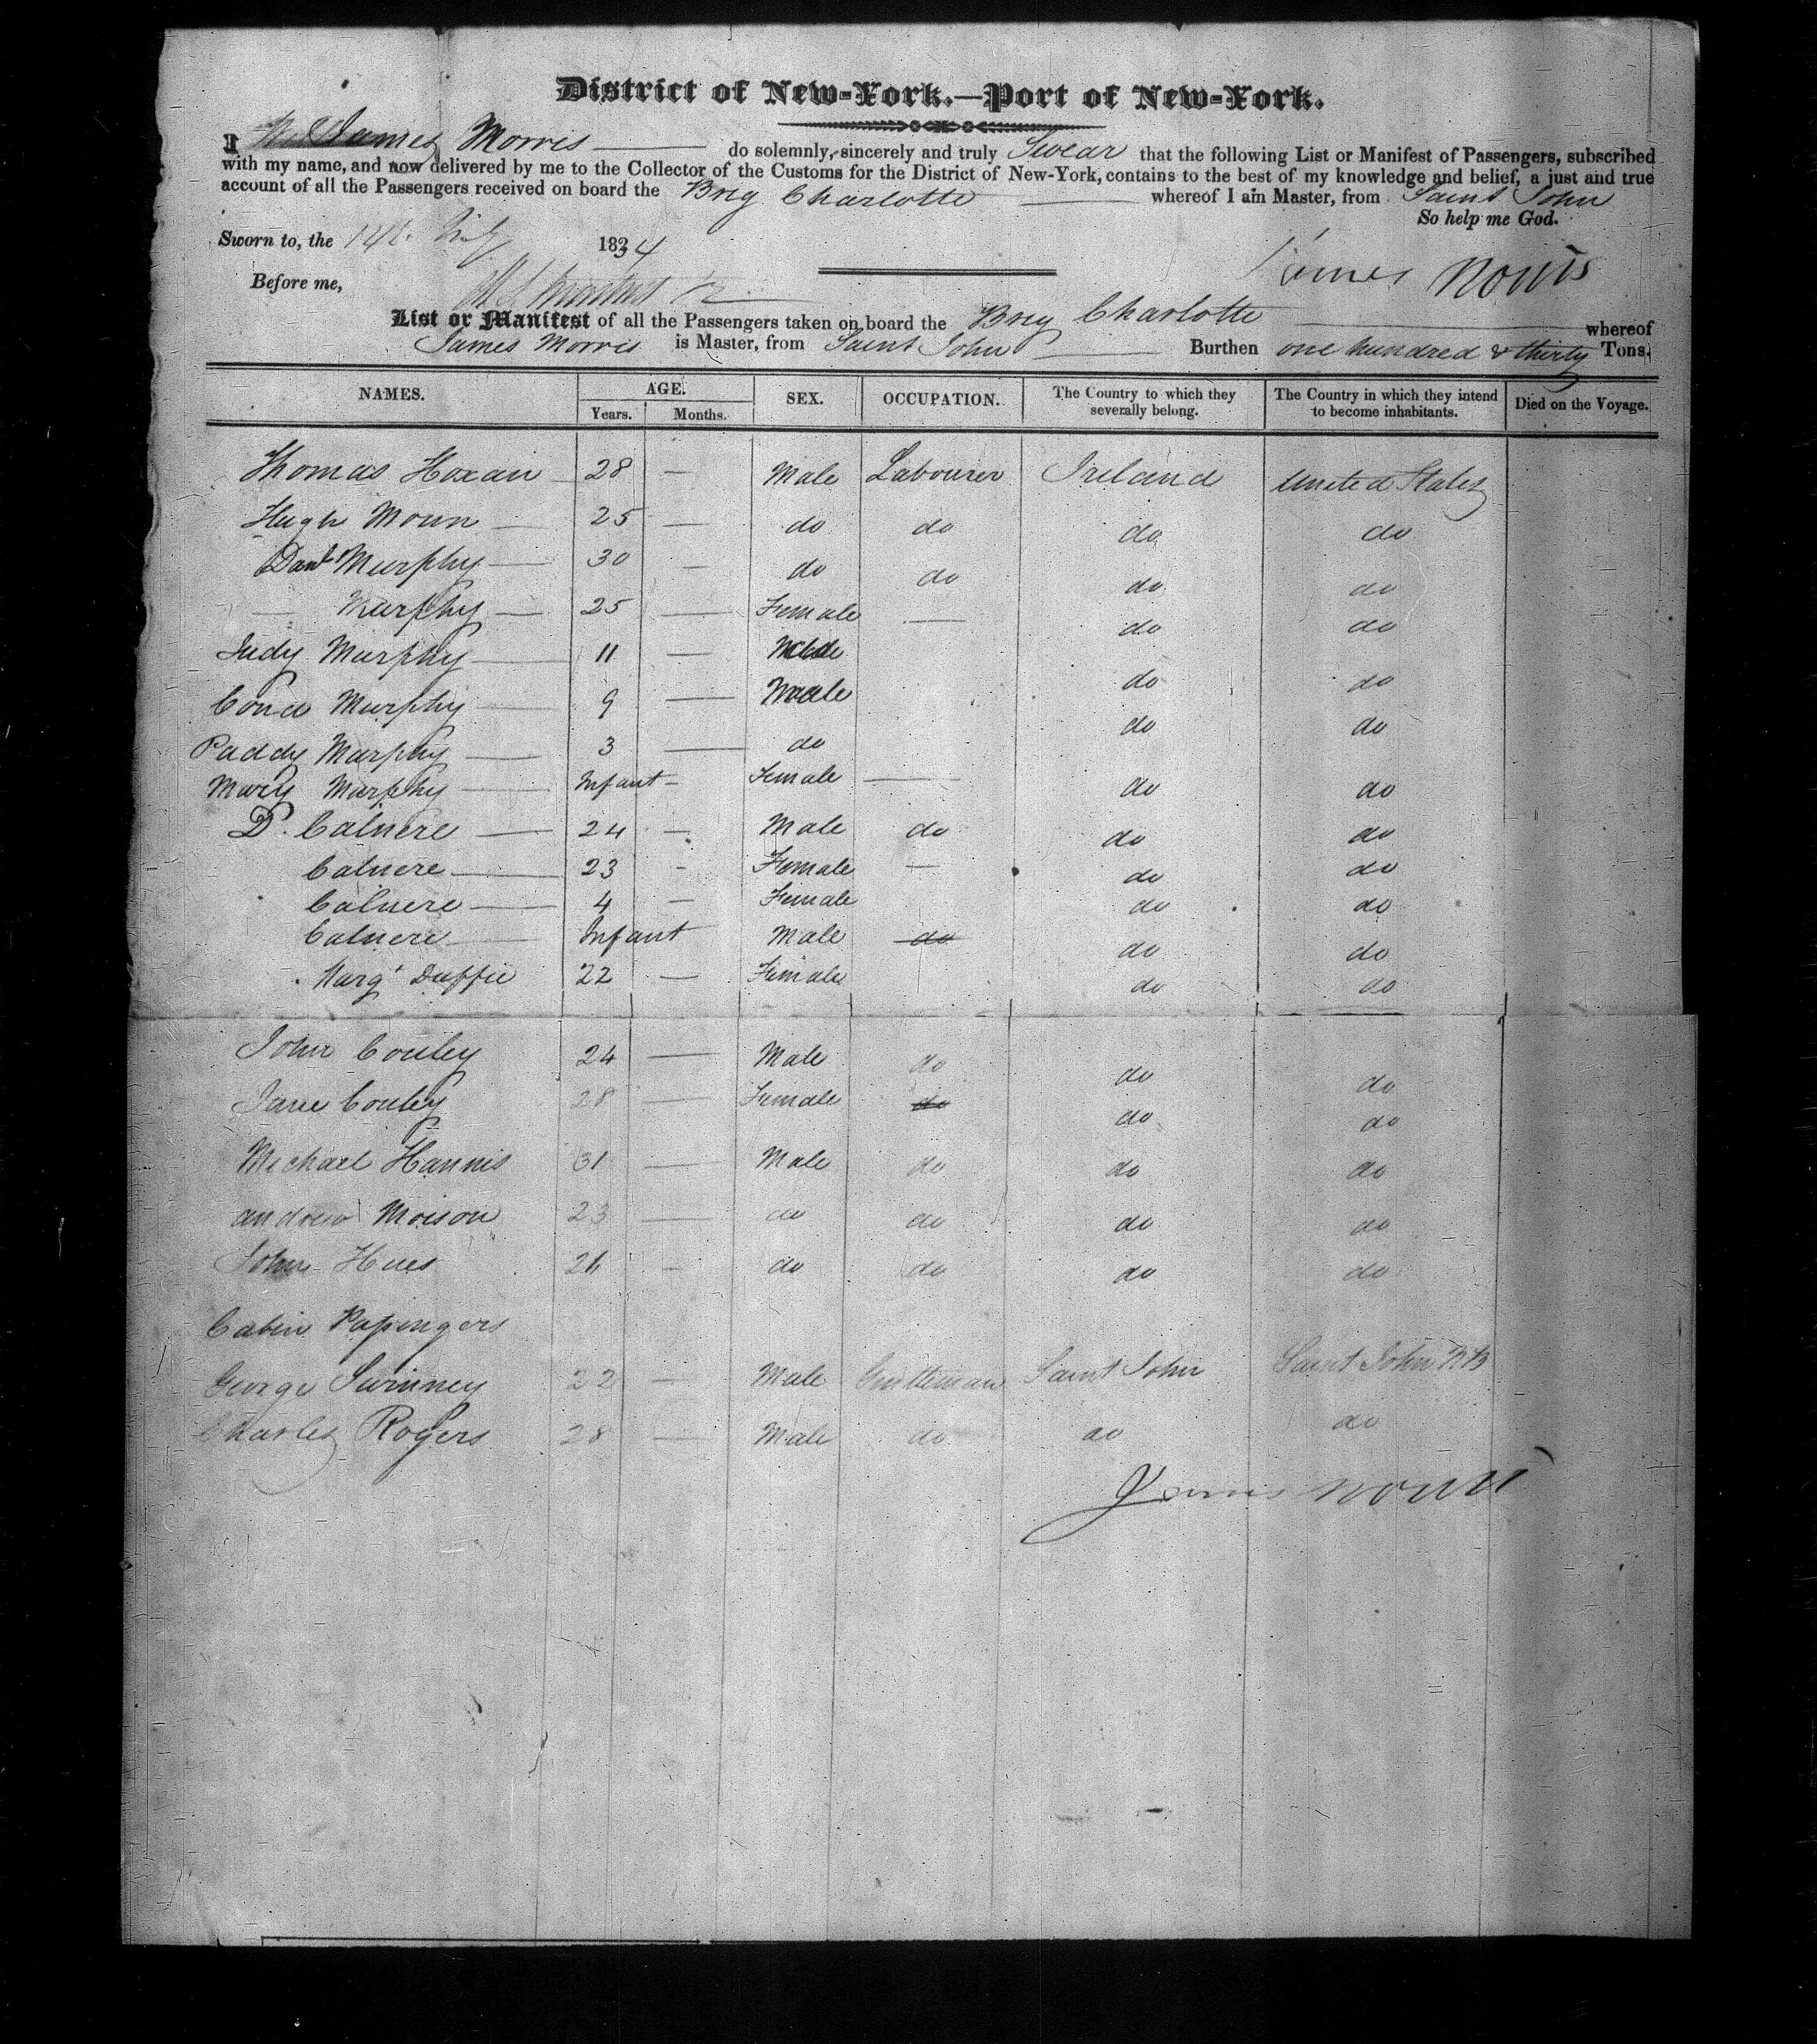 District of New-York.—Port of New-York.
I James Morris do solemnly, sincerely and truly Swear that the following List or Manifest of Passengers, subscribed
with my name, and now delivered by me to the Collector of the Customs for the District of New-York, contains to the best of my knowledge and belief, a just and true
account of all the Passengers received on board the Brig Charlotte whereof I am Master, from Saint John
So help me God.
Sworn to, the 14th 1834
James Morris
Before me,
List or Manifest of all the Passengers taken on board the Brig Charlotte whereof
James Morris is Master, from Saint John Burthen one hundred & thirty Tons.
NAMES. AGE. SEX. OCCUPATION. The Country to which they severally belong. The Country in which they intend to become inhabitants. Died on the Voyage.
Years. Months.
Thomas Hoxan 28 — Male Labourer Ireland United States
Hugh Moun — 25 — do do do do
Danl Murphy — 30 — do do do do
— Murphy — 25 — Female — do do
Judy Murphy — 11 — do do
Cond Murphy — 9 — Male do do
Paddy Murphy — 3 — do
Mary Murphy — Infant — Female — do do
D. Calnere — 24 — Male do do do
Calnere — 23 - Female — do do
Calnere — 4 — Female do do
Calnere — Infant Male do do do
Margt Duffie 22 — Female do do
John Couley 24 — Male do do do
Jane Couley 28 — Female do do do
Michael Hannis 31 — Male do do do
andrew Moison 23 — do do do do
John Hues 26 - do do do do
Cabin Passengers
George Swinney 22 — Male Gentleman Saint John Saint John NB
Charles Rogers 28 — Male do do do
James Morris